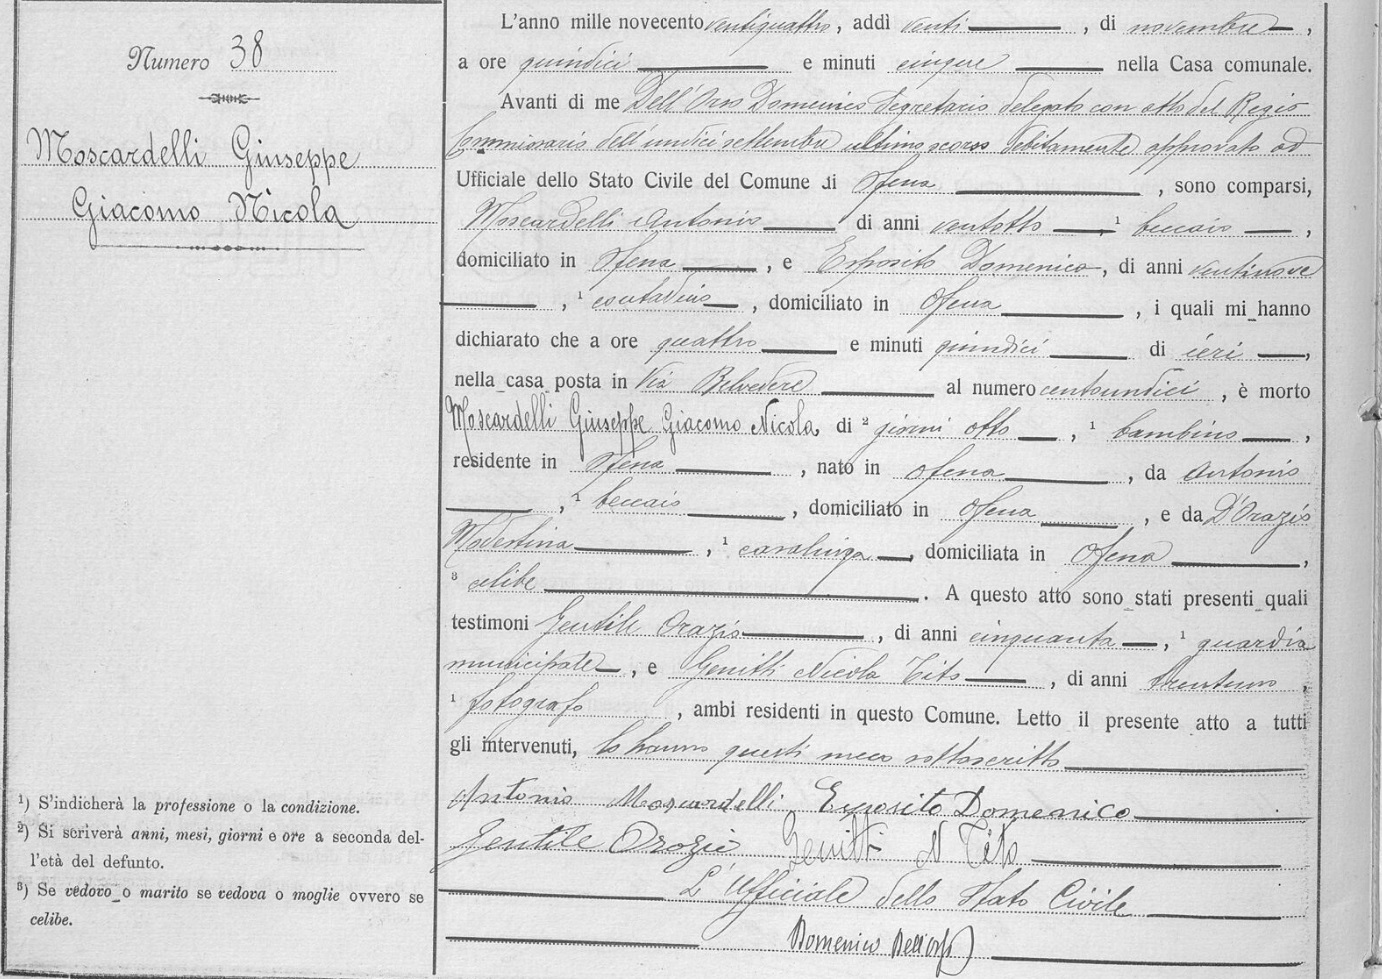 Numero 38
Moscardelli Giuseppe
Giacomo Nicola
¹) S'indicherà la professione o la condizione.
²) Si scriverà anni, mesi, giorni e ore a seconda del-
l'età del defunto.
³) Se vedovo o marito se vedova o moglie ovvero se
celibe.
L'anno mille novecento ventiquattro, addì venti, di novembre,
a ore quindici e minuti cinque nella Casa comunale.
Avanti di me Dell'Orso Domenico Segretario delegato con atto del Regio
Commissario dell'undici settembre ultimo scorso debitamente approvato ad
Ufficiale dello Stato Civile del Comune di Ofena, sono comparsi,
Moscardelli Antonio di anni ventotto, ¹ beccaio,
domiciliato in Ofena, e Esposito Domenico, di anni ventinove
, ¹ contadino, domiciliato in Ofena, i quali mi hanno
dichiarato che a ore quattro e minuti quindici di ieri,
nella casa posta in Via Belvedere al numero centoundici, è morto
Moscardelli Giuseppe Giacomo Nicola di ² giorni otto, ¹ bambino,
residente in Ofena, nato in Ofena, da Antonio
, ¹ beccaio, domiciliato in Ofena, e da D'Orazio
Modestina, ¹ casalinga, domiciliata in Ofena,
³ celibe. A questo atto sono stati presenti quali
testimoni Gentile Orazio, di anni cinquanta, ¹ guardia
municipale, e Genitti Nicola Tito, di anni trentuno,
¹ fotografo, ambi residenti in questo Comune. Letto il presente atto a tutti
gli intervenuti, lo hanno questi meco sottoscritto
Antonio Moscardelli Esposito Domenico
Gentile Orazio Genitti N Tito
L'Ufficiale dello Stato Civile
Domenico Dell'Orso